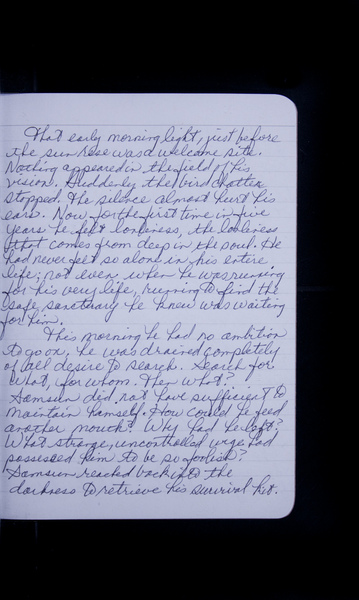 That early morning light, just before
the sun rose was a welcome site.
Nothing appeared in the field of his
vision. Suddenly the bird chatter
stopped. The silence almost hurt his
ears. Now for the first time in five
years he felt loneliness, the loneliness
that comes from deep in the soul. He
had never felt so alone in his entire
life; not even when he was running
for his very life, running to find the
safe sanctuary he knew was waiting
for him.
This morning he had no ambition
to go on. he was drained completely
of all desire to search. Search for
what, for whom. Then what.
Samsun did not have sufficient to
maintain himself. How could he feed
another mouth? Why had he left?
What strange, uncontrolled urge had
possessed him to be so foolish?
Samsun reached back into the
darkness to retrieve his survival kit.